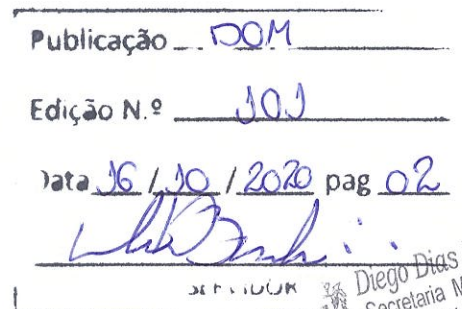 Publicação DOM
Edição N.º 101
Data 16 / 10 / 2020 pag 02
SERVIDOR
Diego Dias
Secretaria M